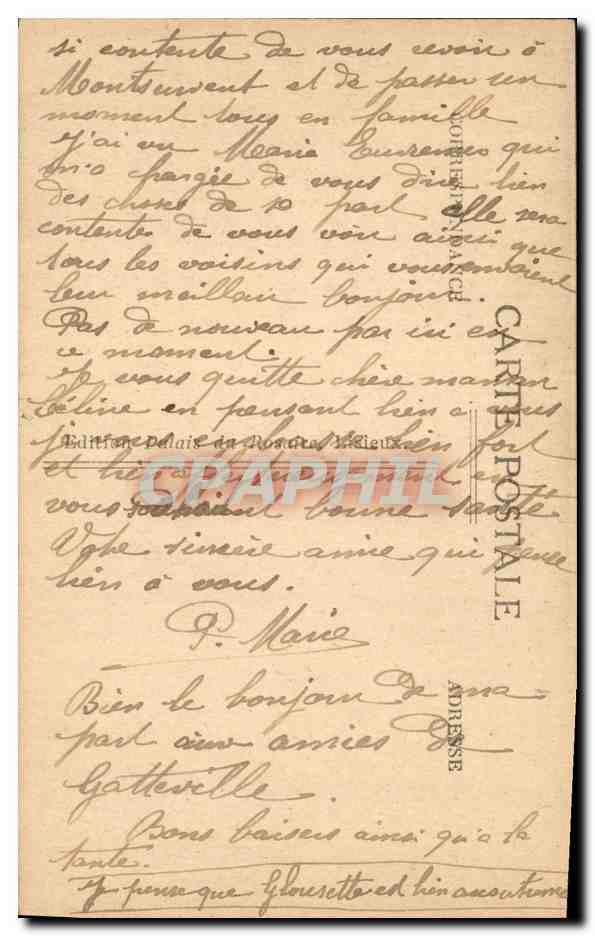 si contente de vous revoir à
Montsurvent et de passer un
moment tous en famille
j'ai vu Marie qui
m'a chargée de vous dire bien
des choses de sa part elle sera
contente de vous voir ainsi que
tous les voisins qui vous envoient
leur meilleur bonjour.
Pas de nouveau par ici en
ce moment.
Je vous quitte chère maman
Céline en pensant bien à vous
je vous embrasse bien fort
et bien en
vous souhaitant bonne santé
Votre sincère amie qui pense
bien à vous.
P. Marie
Bien le bonjour de ma
part aux amies de
Gatteville.
Bons baisers ainsi qu'a la
tante.
Je pense que est bien
CARTE POSTALE
CORRESPONDANCE
ADRESSE
Edition Palais du Rosaire, Lisieux.
CPAPHIL